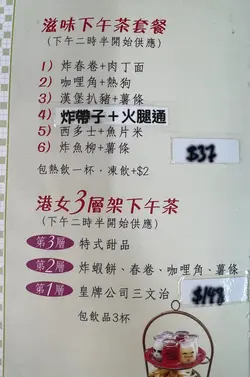 滋味下午茶套餐
(下午二時半開始供應)
1) 炸春卷+肉丁面
2) 咖哩角+熱狗
3) 漢堡扒豬+薯條
4) 炸帶子+火腿通
5) 西多士+魚片米
6) 炸魚柳+薯條
$37
包熱飲一杯·凍飲+$2
港女3層架下午茶
(下午二時半開始供應)
第3層 特式甜品
第2層 炸蝦餅、春卷、咖哩角、薯條
第1層 皇牌公司三文治
$148
包飲品3杯